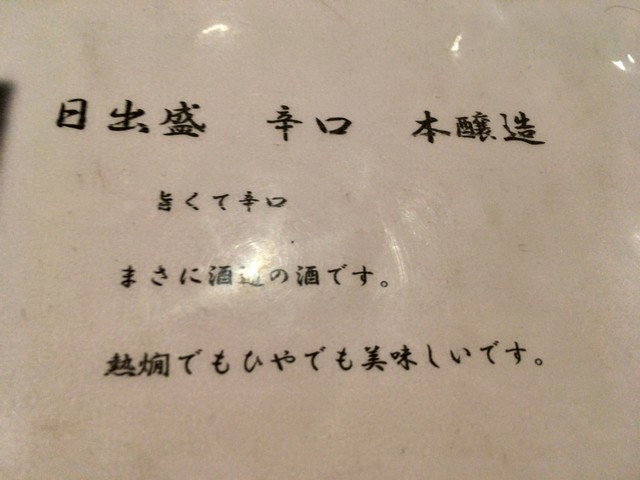 日出盛 辛口 本醸造
旨くて辛口
まさに酒通の酒です。
熱燗でもひやでも美味しいです。